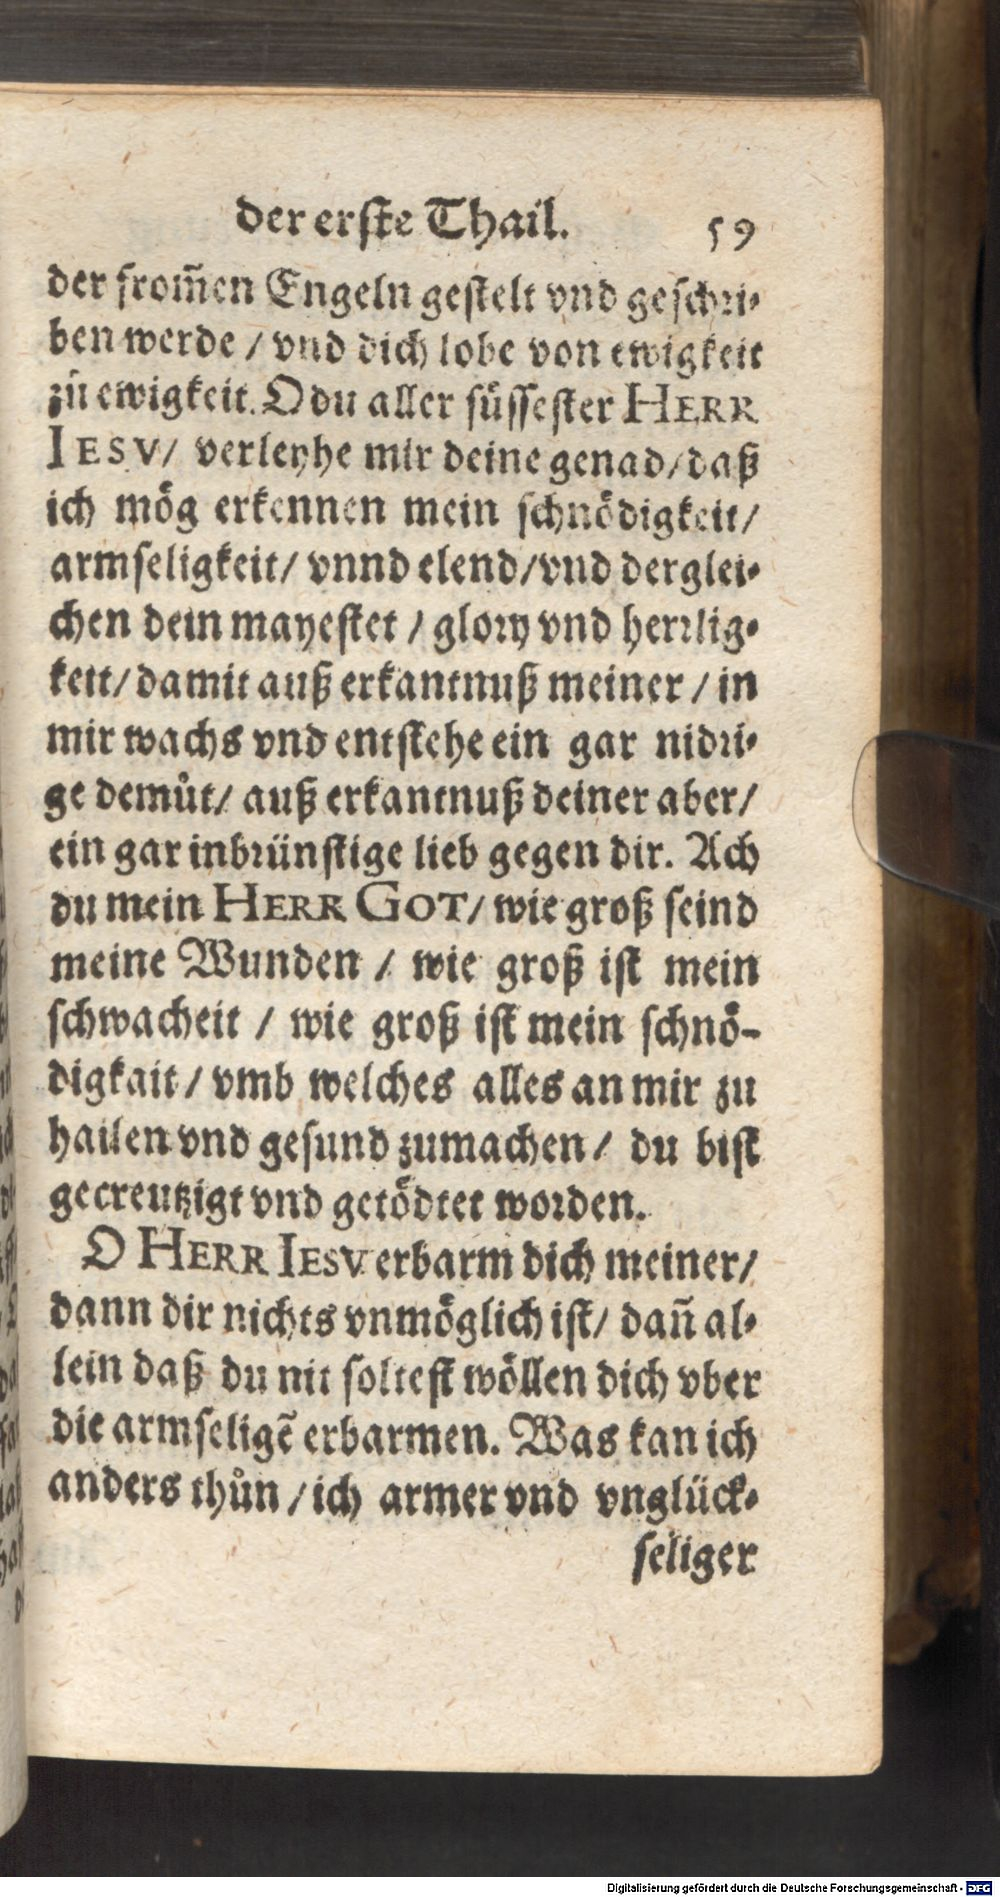 der erste Thail. 59
der from̃en Engeln gestelt vnd geschri-
ben werde / vnd dich lobe von ewigkeit
zů ewigkeit. O du aller süssester HERR
IESV / verleyhe mir deine genad / daß
ich mög erkennen mein schnödigkeit /
armseligkeit / vnnd elend / vnd derglei-
chen dein mayestet / glory vnd herrlig-
keit / damit auß erkantnuß meiner / in
mir wachs vnd entstehe ein gar nidri-
ge demůt / auß erkantnuß deiner aber /
ein gar inbrünstige lieb gegen dir. Ach
du mein HERR GOT / wie groß seind
meine Wunden / wie groß ist mein
schwacheit / wie groß ist mein schnö-
digkait / vmb welches alles an mir zu
hailen vnd gesund zumachen / du bist
gecreutzigt vnd getödtet worden.
O HERR IESV erbarm dich meiner /
dann dir nichts vnmöglich ist / dañ al-
lein daß du nit soltest wöllen dich vber
die armseligẽ erbarmen. Was kan ich
anders thůn / ich armer vnd vnglück-
seliger
Digitalisierung gefördert durch die Deutsche Forschungsgemeinschaft - DFG